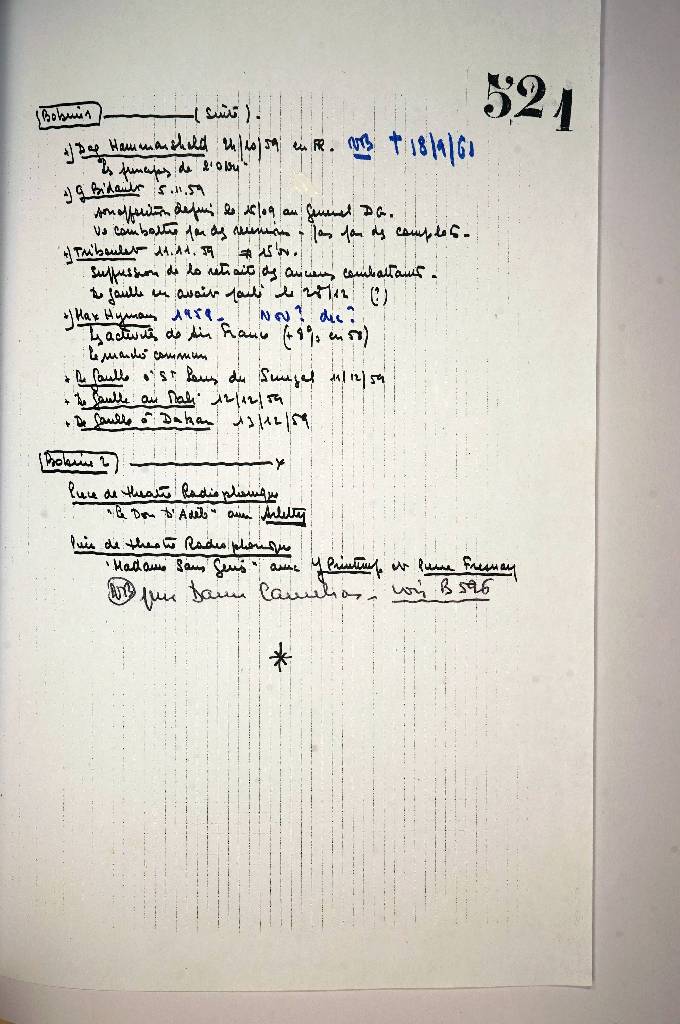 521
Bobine 1 (Suite).
+) Dag Hammarskold 24/10/59 en FR. NB † 18/9/61
"Les principes de l'ONU"
+) G Bidault 5.11.59
son opposition depuis le 16/09 au General DG.
Va combattre par des reunions - pas par des complots.
+) Triboulet 11.11.59
Suppression de la retraite des anciens combattants.
De Gaulle en avait parlé le 28/12 (?)
+) Max Hymans 1959- Nov? dec?
Les activités de Air France (+8% en 58)
Le marché commun
+ De Gaulle à St Louis du Senegal 11/12/59
+ De Gaulle au Mali 12/12/59
+ De Gaulle à Dakar 13/12/59
Bobine 2
Piece de theatre Radiophonique
"Le Don D'Adele" avec Arletty
Piece de theatre Radiophonique
"Madame Sans Gene" avec Y Printemps et Pierre Fresnay
NB pour Dame Camelias - voir B 596